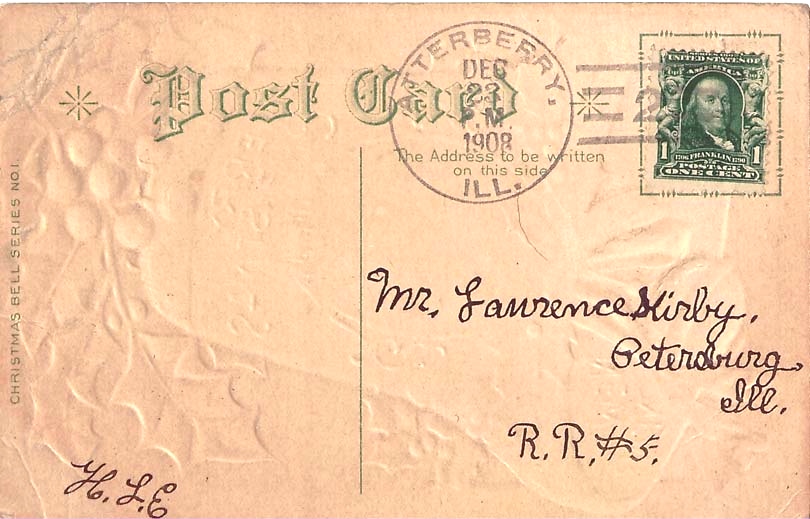 Post Card
ATTERBERRY.
DEC
23
P.M.
1908
ILL.
2
UNITED STATES OF
AMERICA
1706 FRANKLIN 1790
1 1
POSTAGE
ONE CENT
The Address to be written
on this side
CHRISTMAS BELL SERIES NO.1.
Mr. Lawrence Kirby,
Petersburg,
Ill.
R.R.#5.
H. L. E